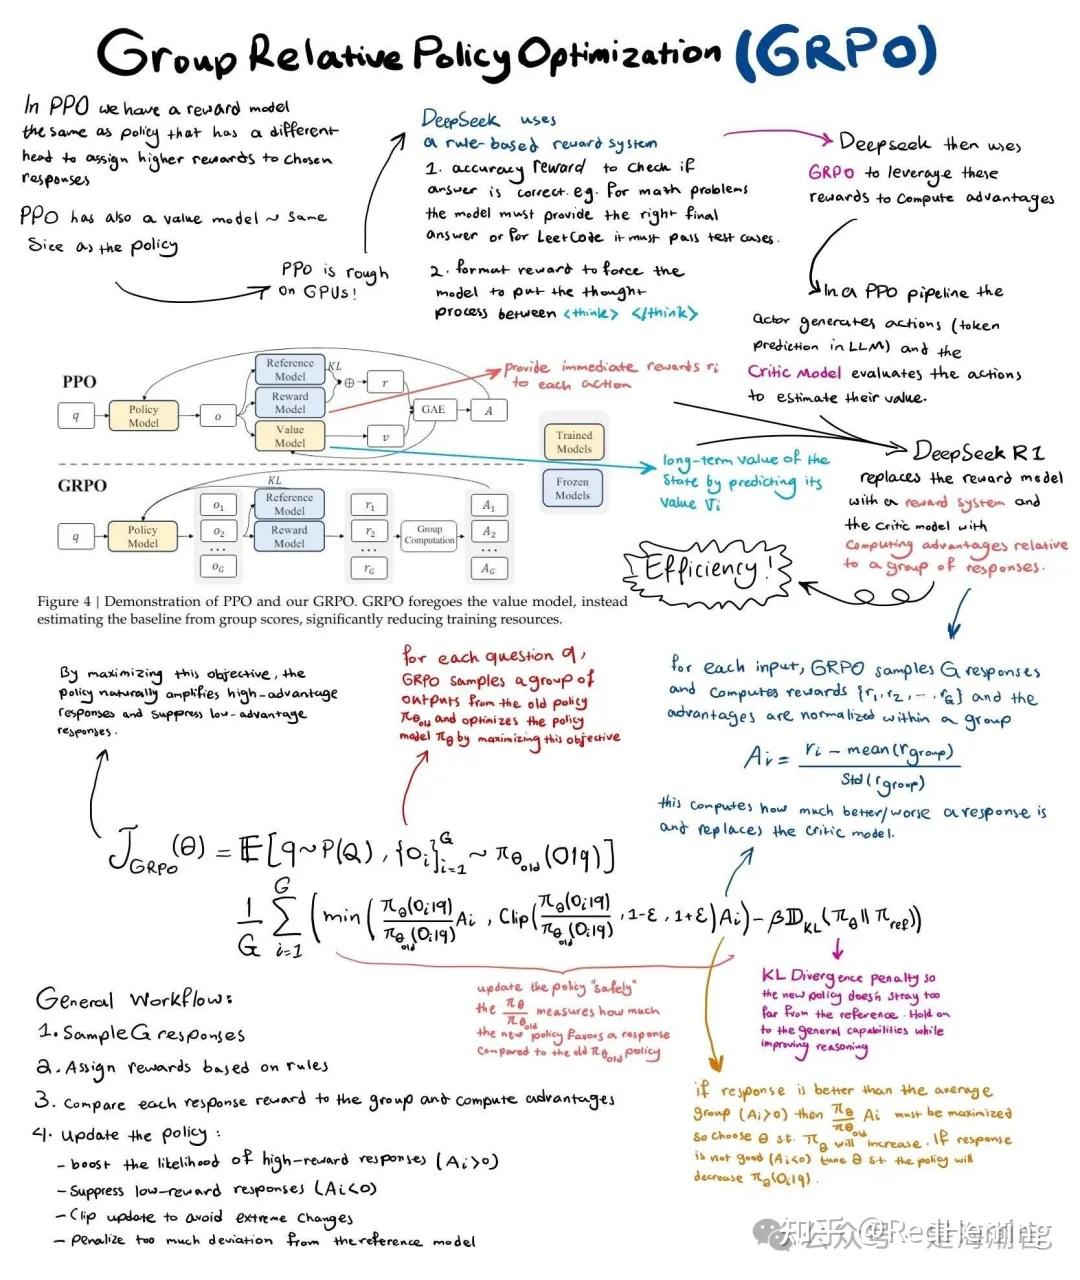 Group Relative Policy Optimization (GRPO)
In PPO we have a reward model
the same as policy that has a different
head to assign higher rewards to chosen
responses
PPO has also a value model ~ same
size as the policy
PPO is rough
on GPUs!
DeepSeek uses
a rule-based reward system
1. accuracy reward to check if
answer is correct. eg. for math problems
the model must provide the right final
answer or for LeetCode it must pass test cases.
2. format reward to force the
model to put the thought
process between <think> </think>
Deepseek then uses
GRPO to leverage these
rewards to compute advantages
In a PPO pipeline the
actor generates actions (token
prediction in LLM) and the
Critic Model evaluates the actions
to estimate their value.
PPO
q
Policy
Model
o
Reference
Model
Reward
Model
Value
Model
KL
⊕
r
v
GAE
A
provide immediate rewards ri
to each action
Trained
Models
Frozen
Models
long-term value of the
state by predicting its
value vi
GRPO
q
Policy
Model
o1
o2
...
oG
KL
Reference
Model
Reward
Model
r1
r2
...
rG
Group
Computation
A1
A2
...
AG
DeepSeek R1
replaces the reward model
with a reward system and
the critic model with
computing advantages relative
to a group of responses.
Efficiency!
Figure 4 | Demonstration of PPO and our GRPO. GRPO foregoes the value model, instead
estimating the baseline from group scores, significantly reducing training resources.
By maximizing this objective, the
policy naturally amplifies high-advantage
responses and suppress low-advantage
responses.
for each question q,
GRPO samples a group of
outputs from the old policy
πθold and optimizes the policy
model πθ by maximizing this objective
for each input, GRPO samples G responses
and computes rewards {r1, r2, ..., rG} and the
advantages are normalized within a group
Ai = ri - mean(rgroup) / Std(rgroup)
this computes how much better/worse a response is
and replaces the critic model.
JGRPO(θ) = E[q~P(Q), {Oi}i=1^G ~ πθold(O|q)]
1/G Σi=1^G (min(πθ(Oi|q)/πθold(Oi|q) Ai, Clip(πθ(Oi|q)/πθold(Oi|q), 1-ε, 1+ε)Ai) - βDKL(πθ||πref))
update the policy "safely"
the πθ/πθold measures how much
the new policy favors a response
compared to the old πθold policy
KL Divergence penalty so
the new policy doesn't stray too
far from the reference. Hold on
to the general capabilities while
improving reasoning
if response is better than the average
group (Ai>0) then πθ/πθold Ai must be maximized
so choose θ s.t. πθ will increase. If response
is not good (Ai<0) tune θ s.t. the policy will
decrease πθ(Oi|q).
General Workflow:
1. Sample G responses
2. Assign rewards based on rules
3. Compare each response reward to the group and compute advantages
4. Update the policy:
- boost the likelihood of high-reward responses (Ai>0)
- Suppress low-reward responses (Ai<0)
- Clip update to avoid extreme changes
- Penalize too much deviation from the reference model
知乎 @RedHerring